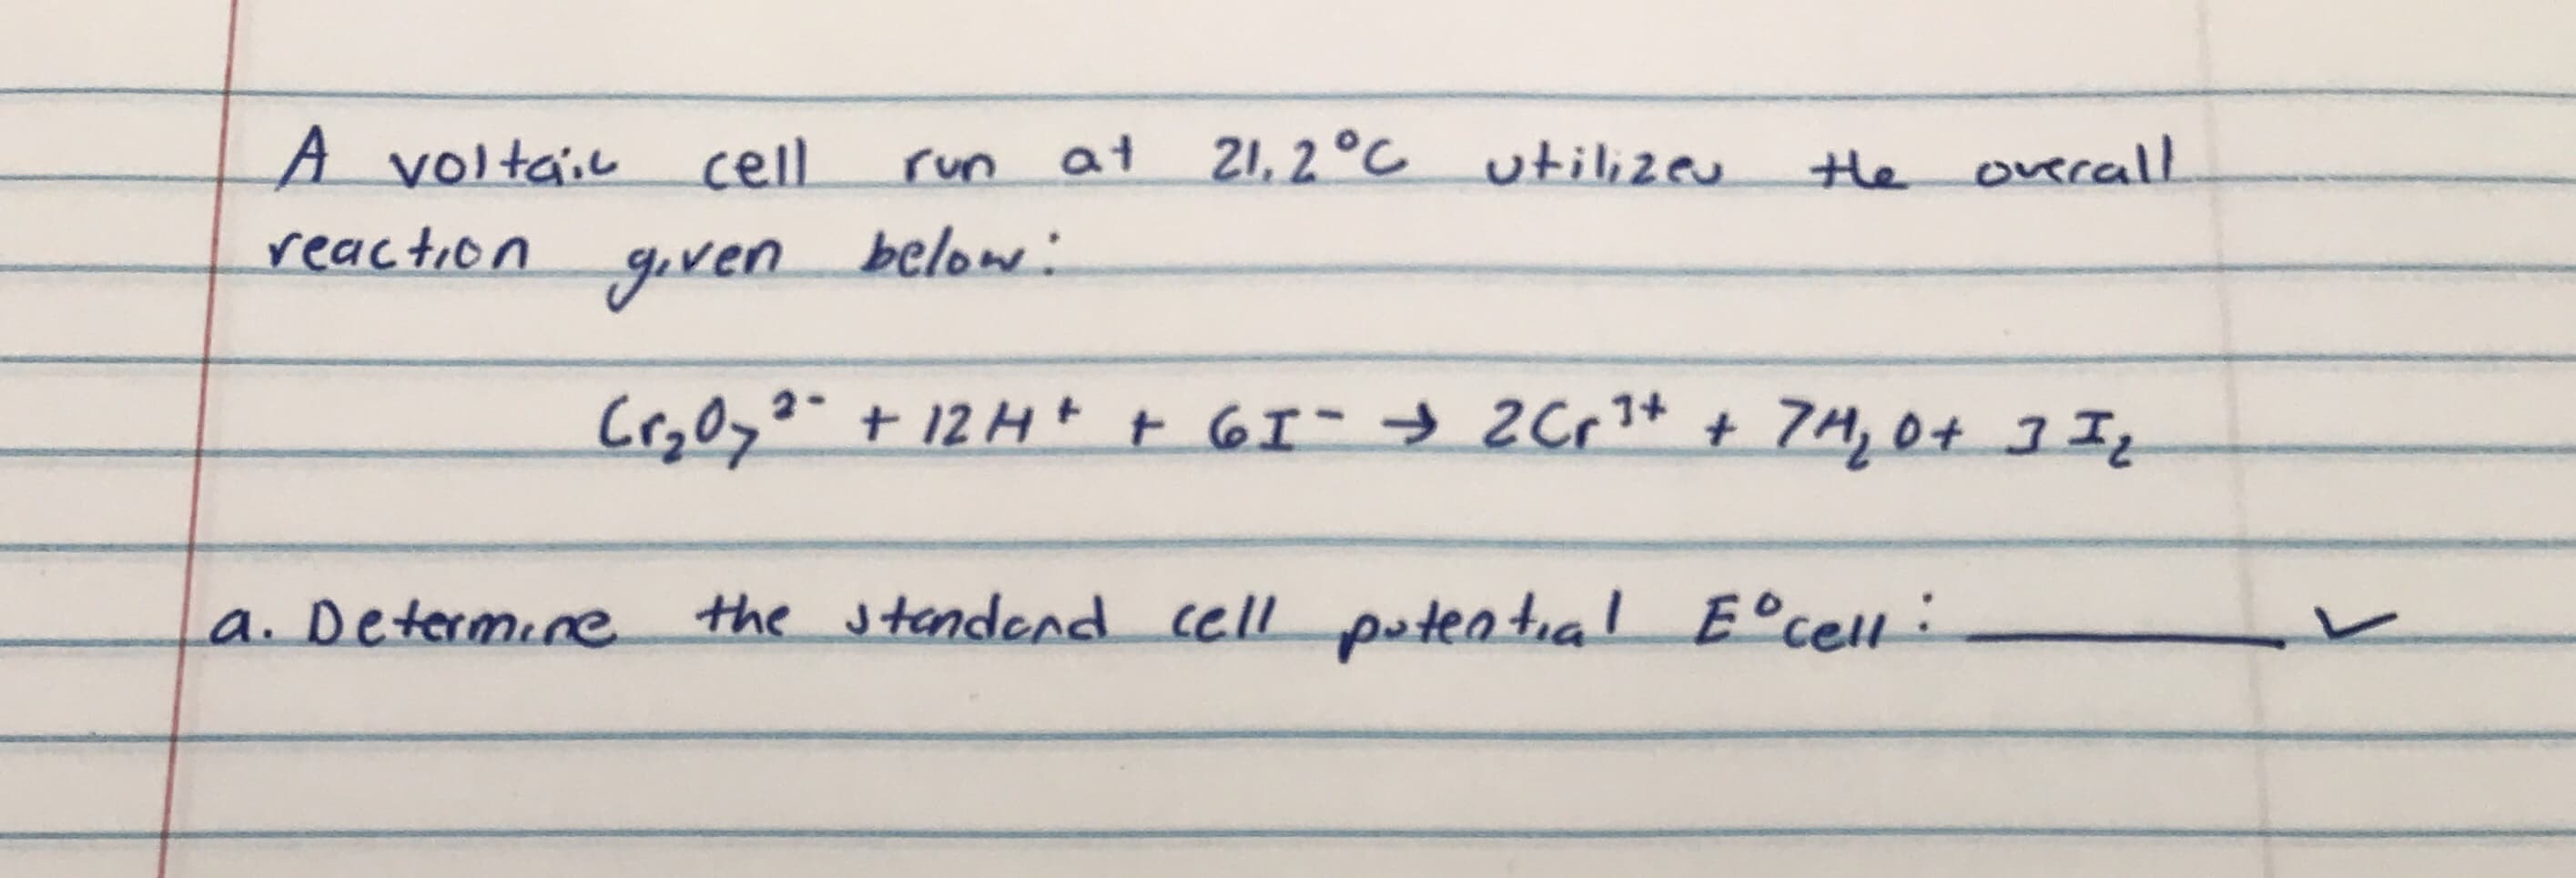 A voltaic cell run at 21.2°C utilizes the overall
reaction given below:
Cr₂O₇²⁻ + 12H⁺ + 6I⁻ → 2Cr³⁺ + 7H₂O + 3I₂
a. Determine the standard cell potential E°cell: ______ V